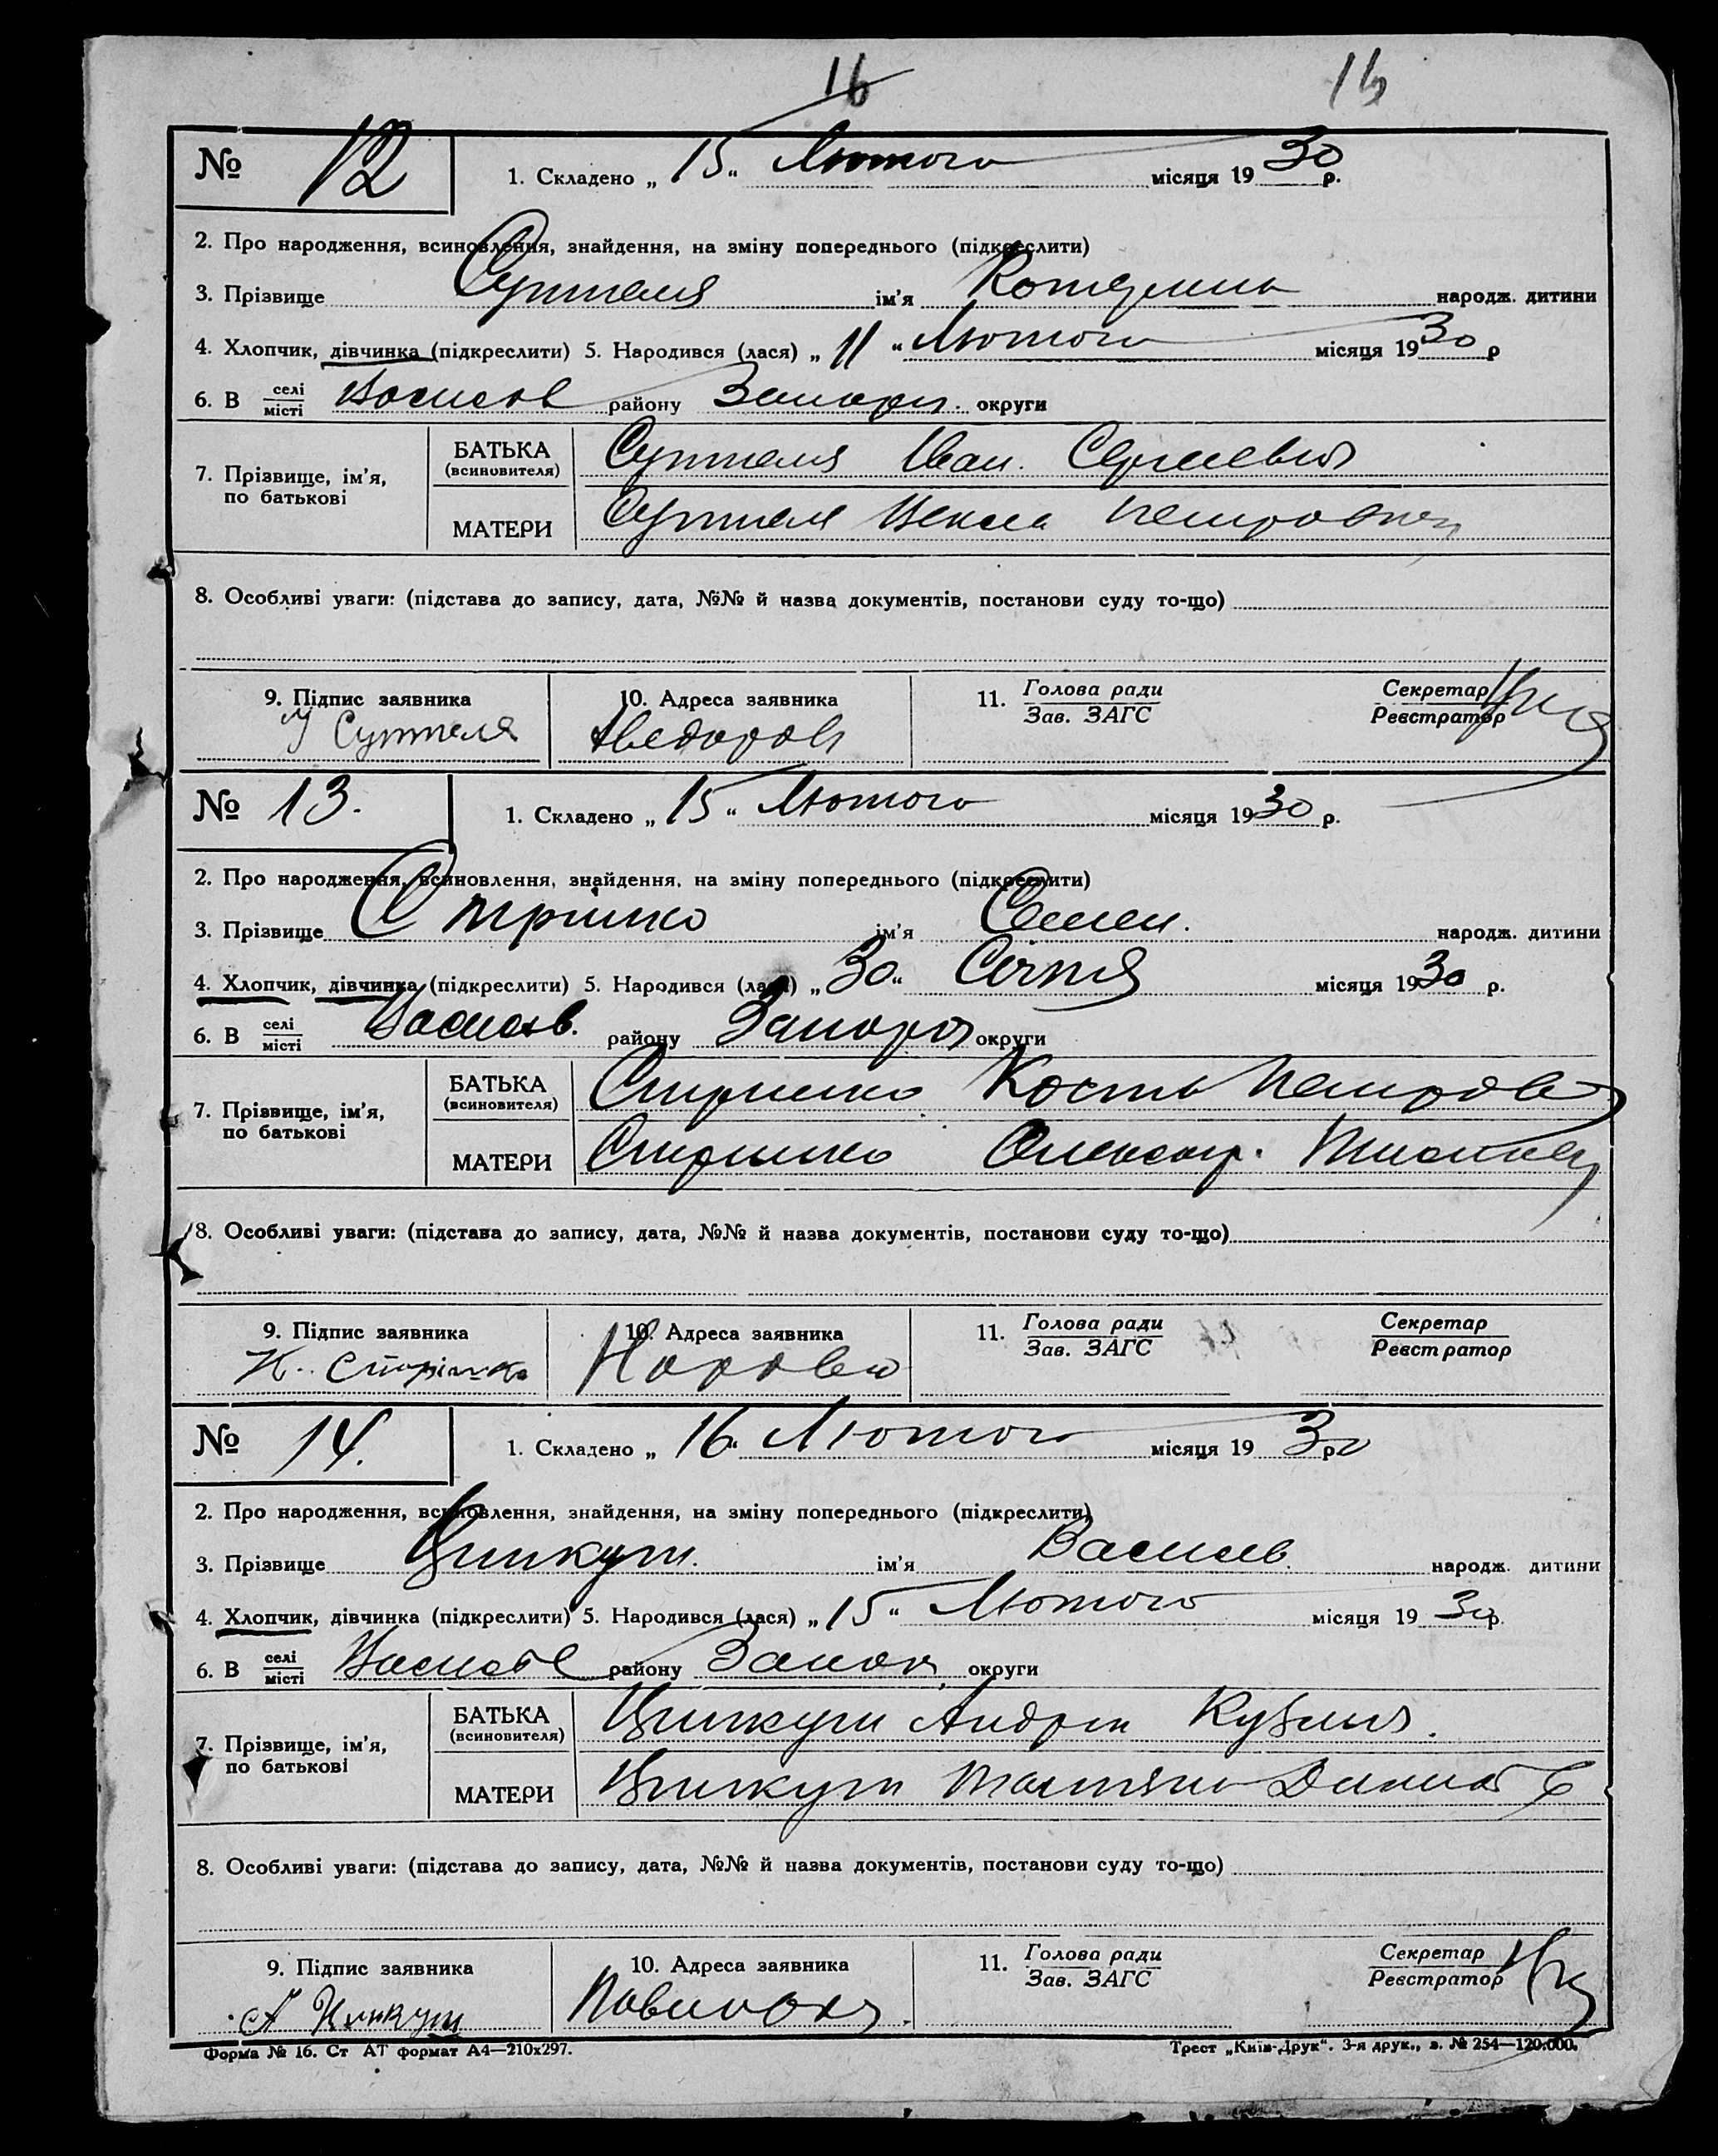 16 16
№ 12 1. Складено „ 15 “ Лютого місяця 19 30 р.
2. Про народження, всиновлення, знайдення, на зміну попереднього (підкреслити)
3. Прізвище Суптеля ім'я Катерина народж. дитини
4. Хлопчик, дівчинка (підкреслити) 5. Народився (лася) „ 11 “ Лютого місяця 19 30 р
6. В селі місті району Запорз. округи
7. Прізвище, ім'я, по батькові БАТЬКА (всиновителя) Суптеля Іван.
МАТЕРИ Суптеля Векла Петровна
8. Особливі уваги: (підстава до запису, дата, №№ й назва документів, постанови суду то-що)
9. Підпис заявника 10. Адреса заявника 11. Голова ради Зав. ЗАГС Секретар Реєстратор
У Суптеля
№ 13. 1. Складено „ 15 “ Лютого місяця 19 30 р.
2. Про народження, всиновлення, знайдення, на зміну попереднього (підкреслити)
3. Прізвище Стрішко ім'я Семен. народж. дитини
4. Хлопчик, дівчинка (підкреслити) 5. Народився (лася) „ 30 “ Січня місяця 19 30 р.
6. В селі місті району округи
7. Прізвище, ім'я, по батькові БАТЬКА (всиновителя) Кость Петров
МАТЕРИ Олександр.
8. Особливі уваги: (підстава до запису, дата, №№ й назва документів, постанови суду то-що)
9. Підпис заявника 10. Адреса заявника 11. Голова ради Зав. ЗАГС Секретар Реєстратор
К.
№ 14. 1. Складено „ 16 “ Лютого місяця 19 30 р
2. Про народження, всиновлення, знайдення, на зміну попереднього (підкреслити)
3. Прізвище Цинкуш. ім'я народж. дитини
4. Хлопчик, дівчинка (підкреслити) 5. Народився (лася) „ 15 “ Лютого місяця 19 30 р.
6. В селі місті району округи
7. Прізвище, ім'я, по батькові БАТЬКА (всиновителя) Цинкуш Андрій
МАТЕРИ Цинкуш
8. Особливі уваги: (підстава до запису, дата, №№ й назва документів, постанови суду то-що)
9. Підпис заявника 10. Адреса заявника 11. Голова ради Зав. ЗАГС Секретар Реєстратор
А Цинкуш
Форма № 16. Ст АТ формат А4—210х297. Трест „Київ-Друк“. 3-я друк., з. № 254—120.000.